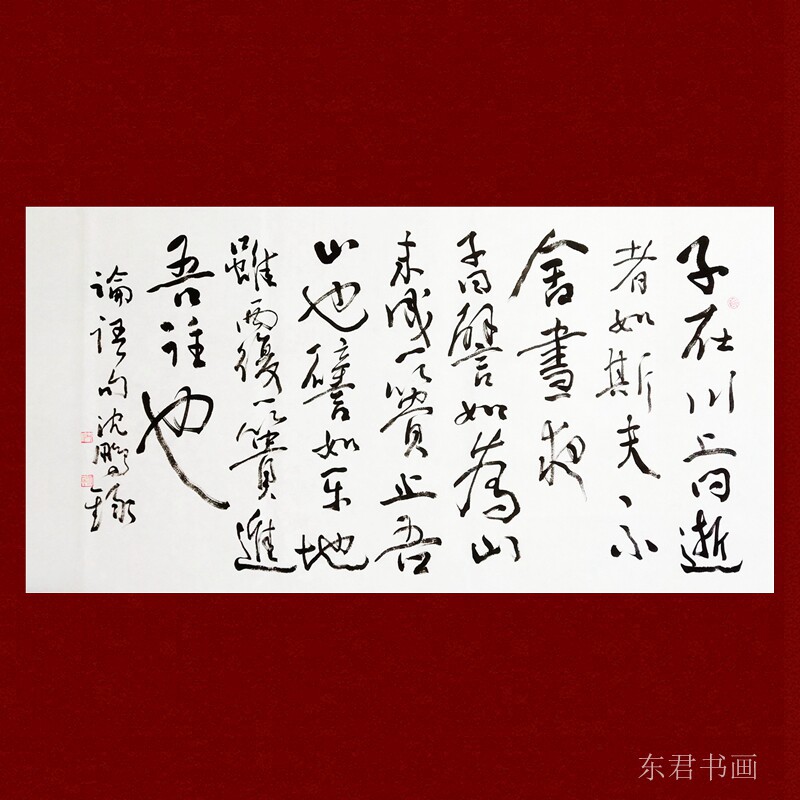 子在川上曰逝
者如斯夫不
舍晝夜
子曰譬如為山
未成一簣止吾
止也譬如平地
雖覆一簣進
吾往也
論語句沈鵬錄
东君书画